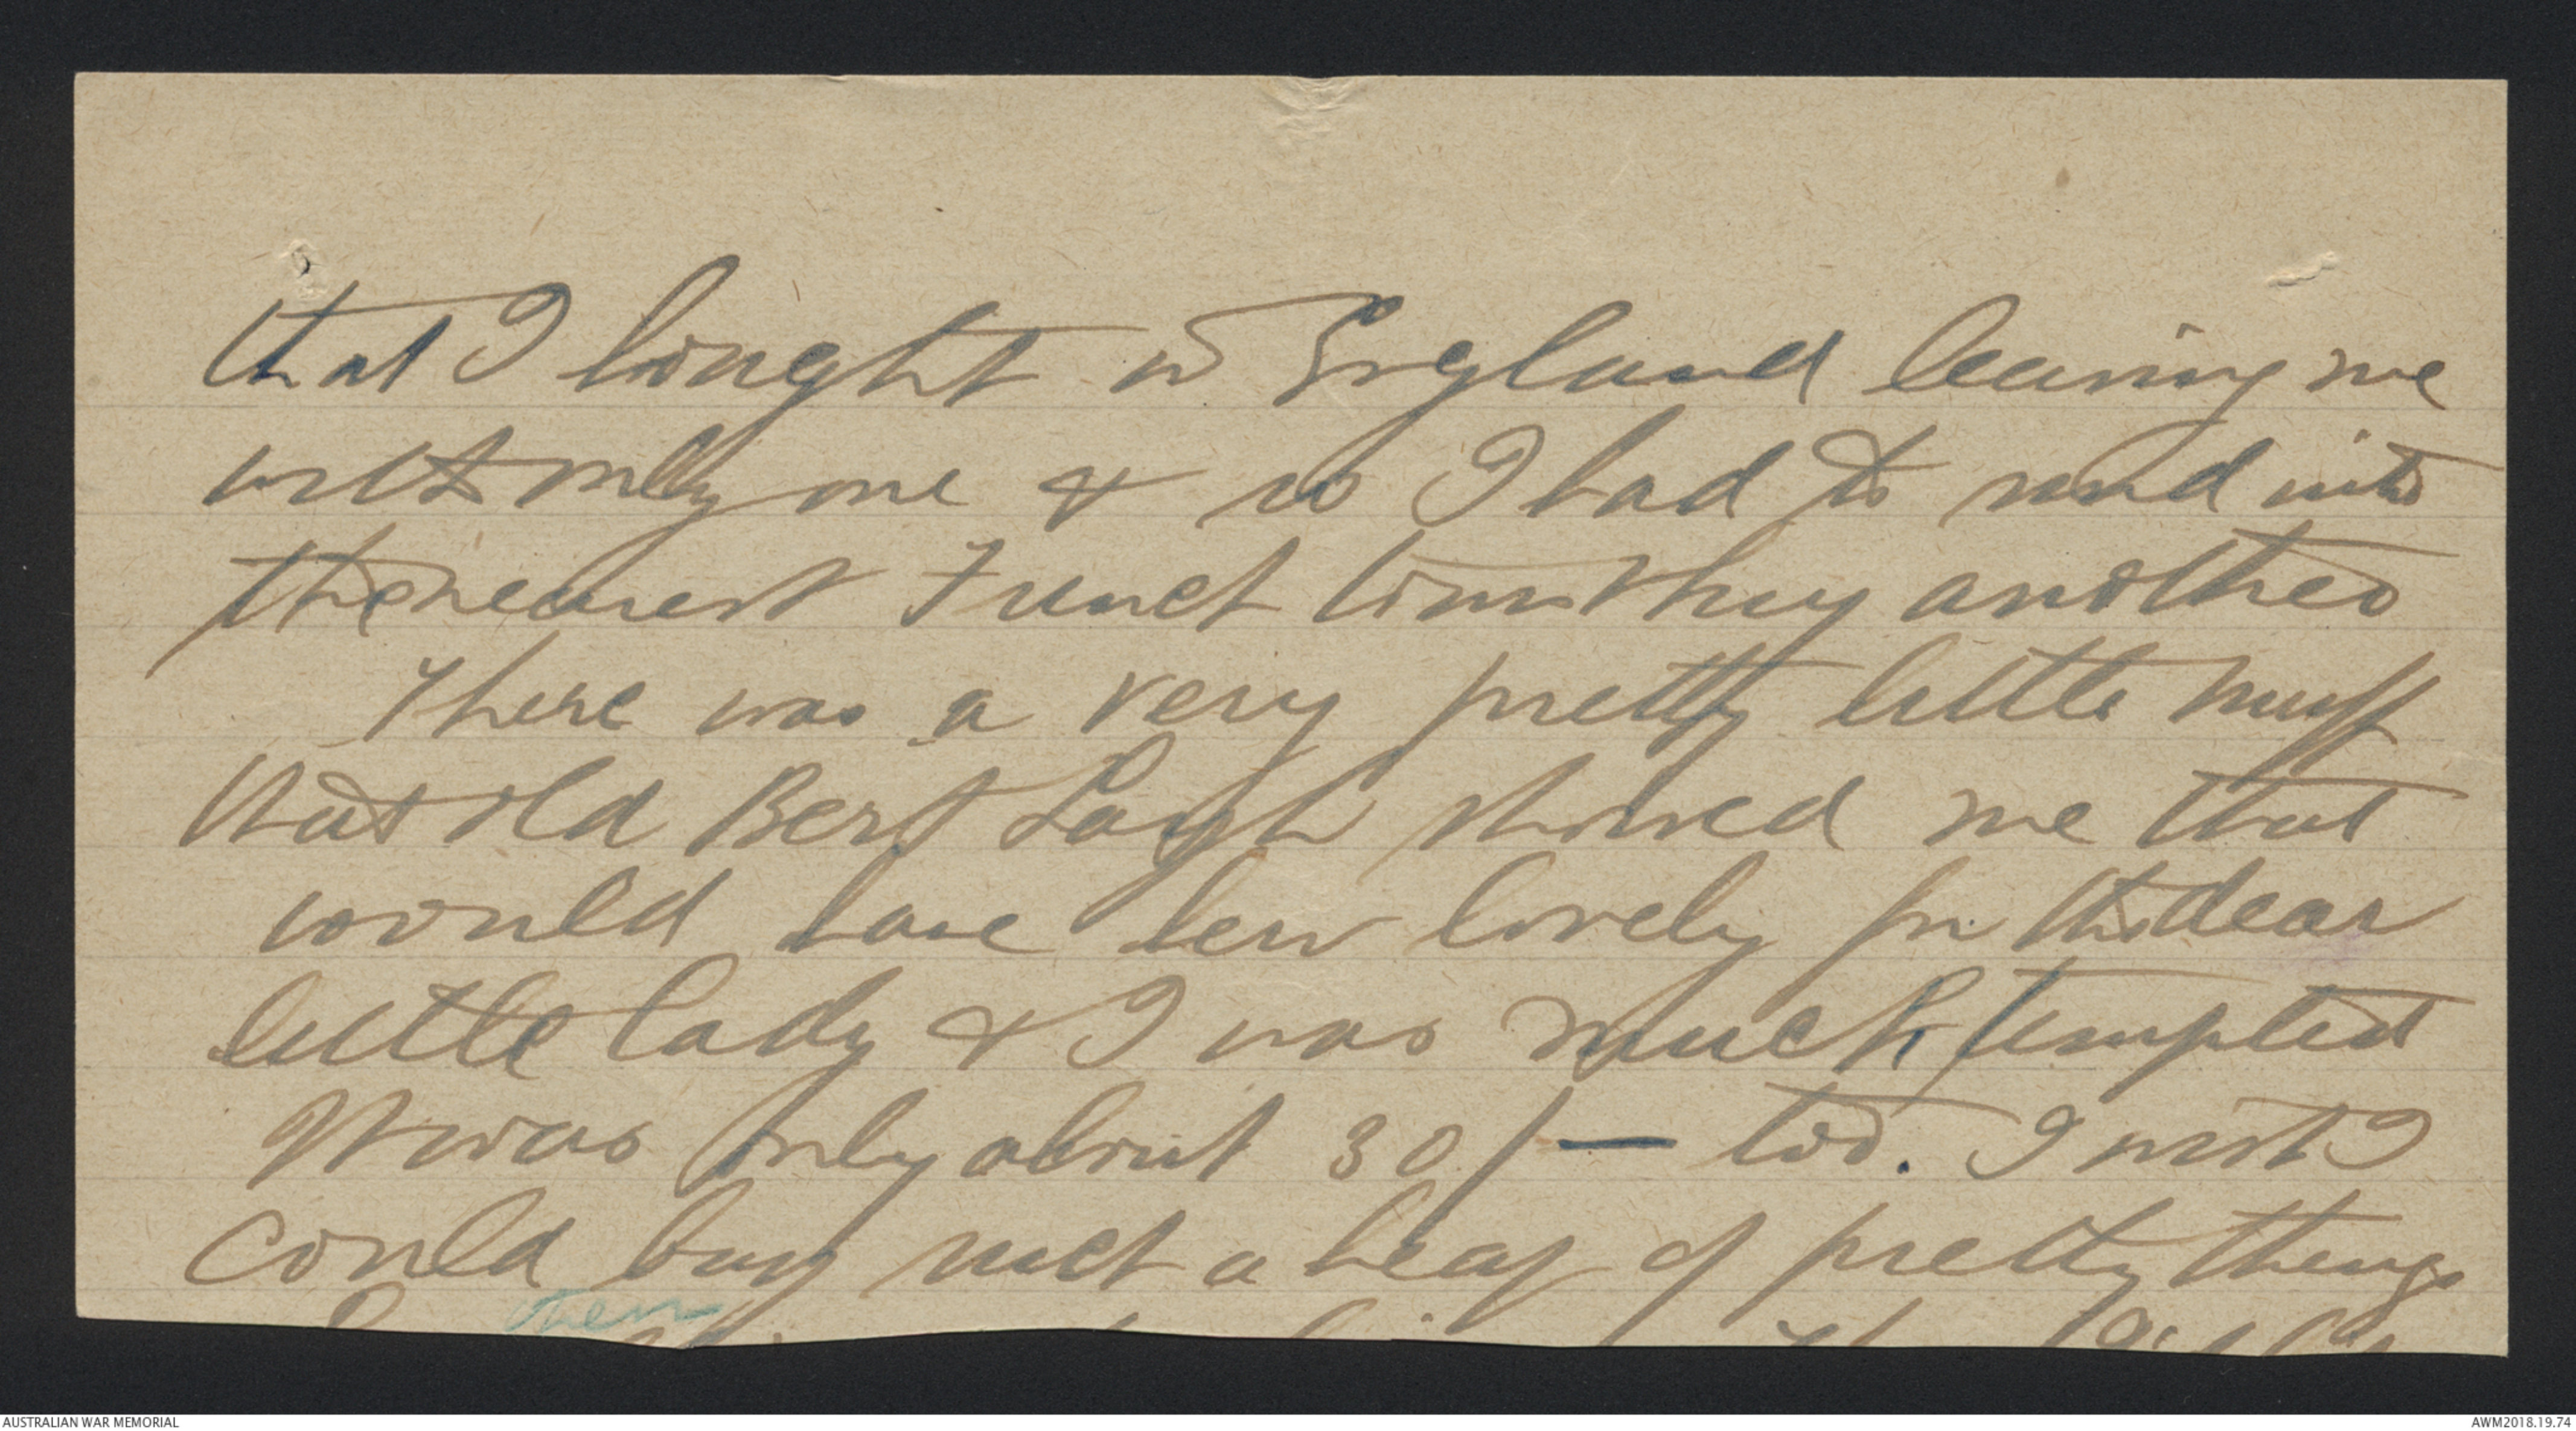 that I bought in England leaving me
with only one & so I had to send into
the nearest French town to buy another
There was a very pretty little muff
that old Bert Layh showed me that
would have been lovely for the dear
little lady & I was much tempted
It was only about 30/- too. I wish I
could buy such a heap of pretty things
then
AUSTRALIAN WAR MEMORIAL
AWM2018.19.74